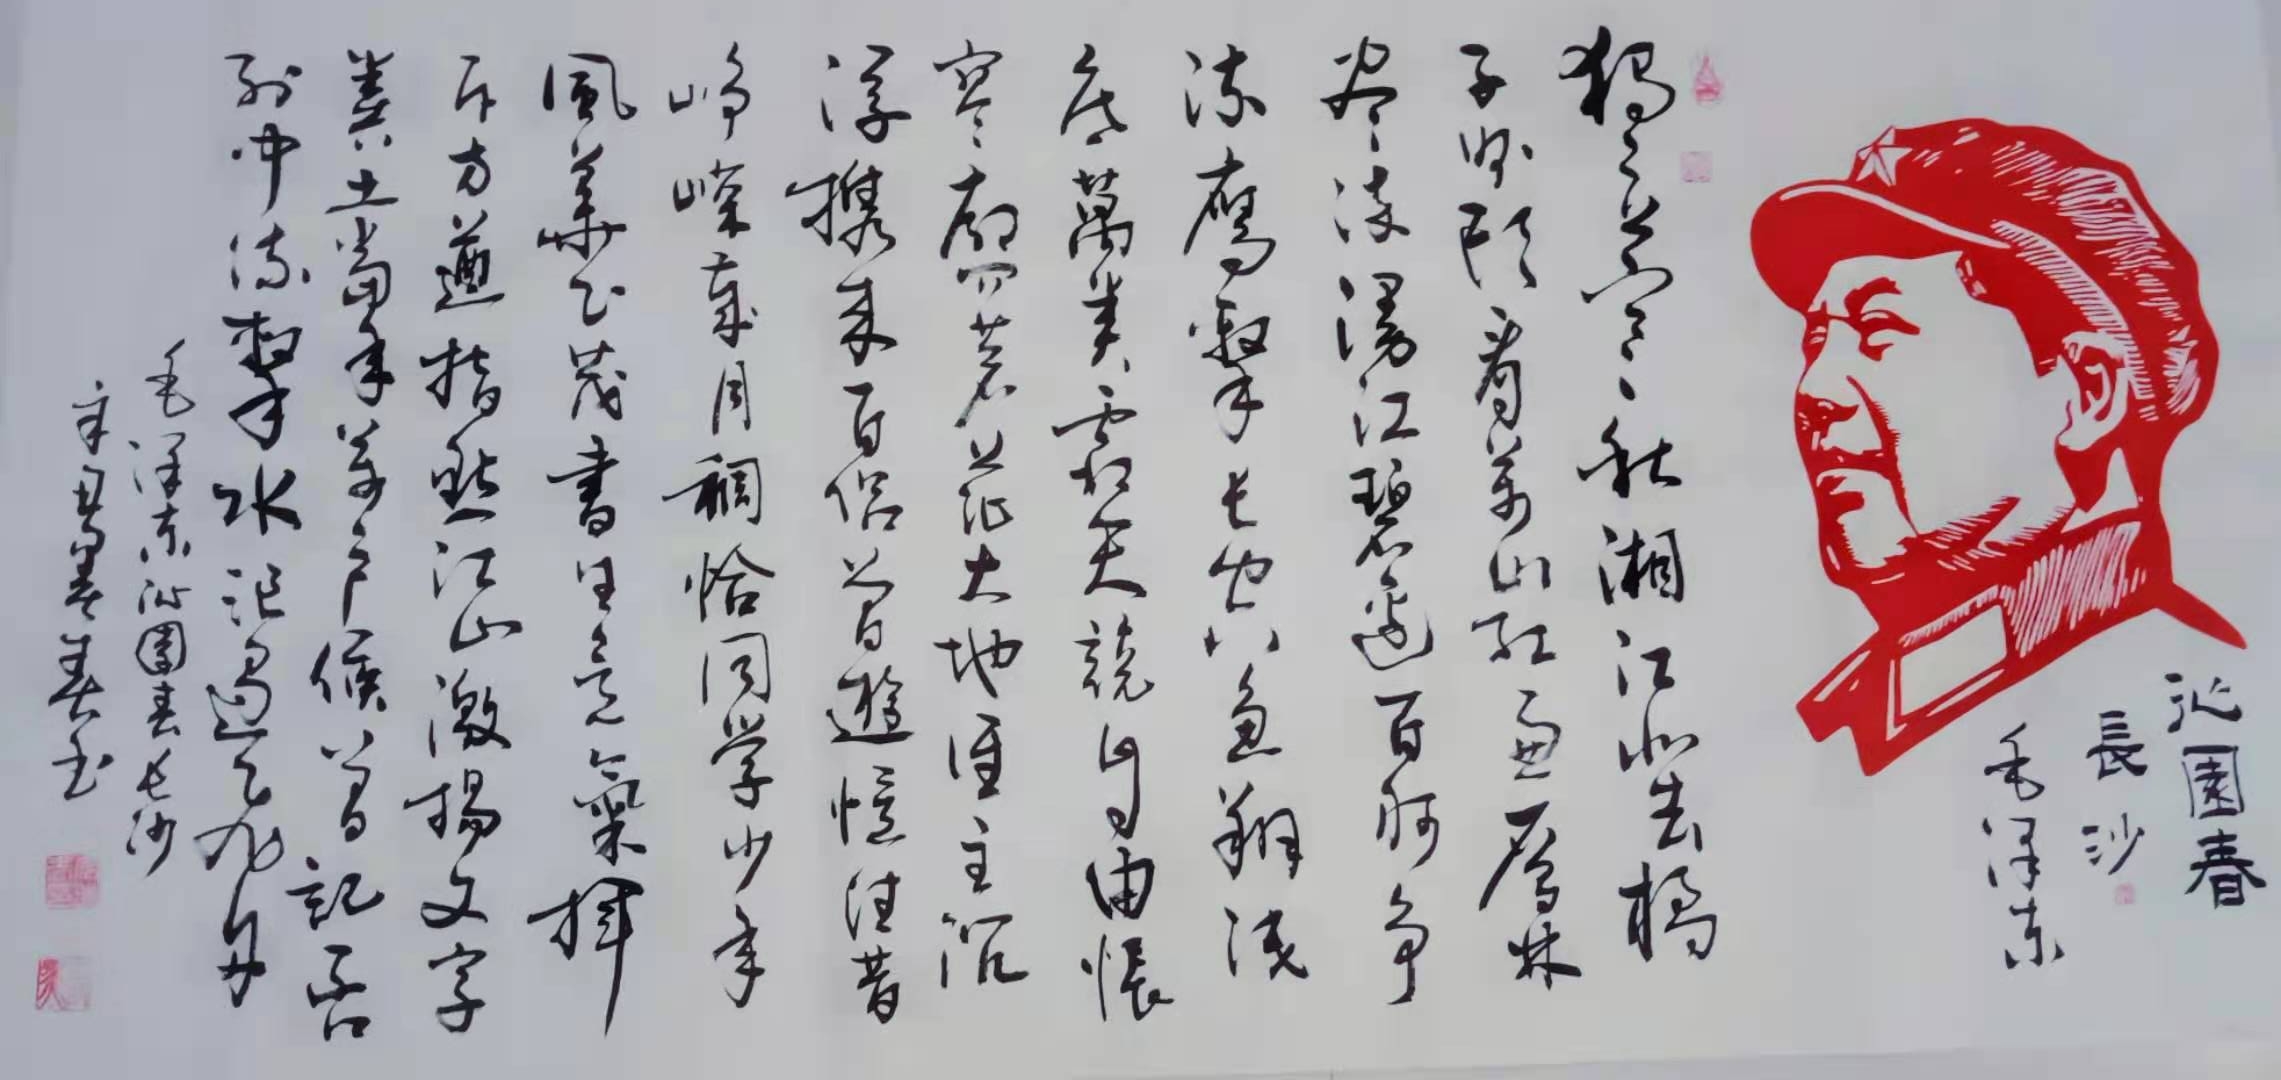 沁園春
長沙
毛泽东
獨立寒秋湘江北去橘
子洲頭看万山红遍層林
盡染漫江碧透百舸争
流鷹擊长空魚翔淺
底萬類霜天競自由悵
寥廓问苍茫大地谁主沉
浮攜来百侣曾遊憶往昔
峥嶸歲月稠恰同学少年
風華正茂書生意氣揮
斥方遒指點江山激揚文字
糞土當年万户侯曾記否
到中流擊水浪遏飞舟
毛泽东沁園春长沙
辛丑暮春书